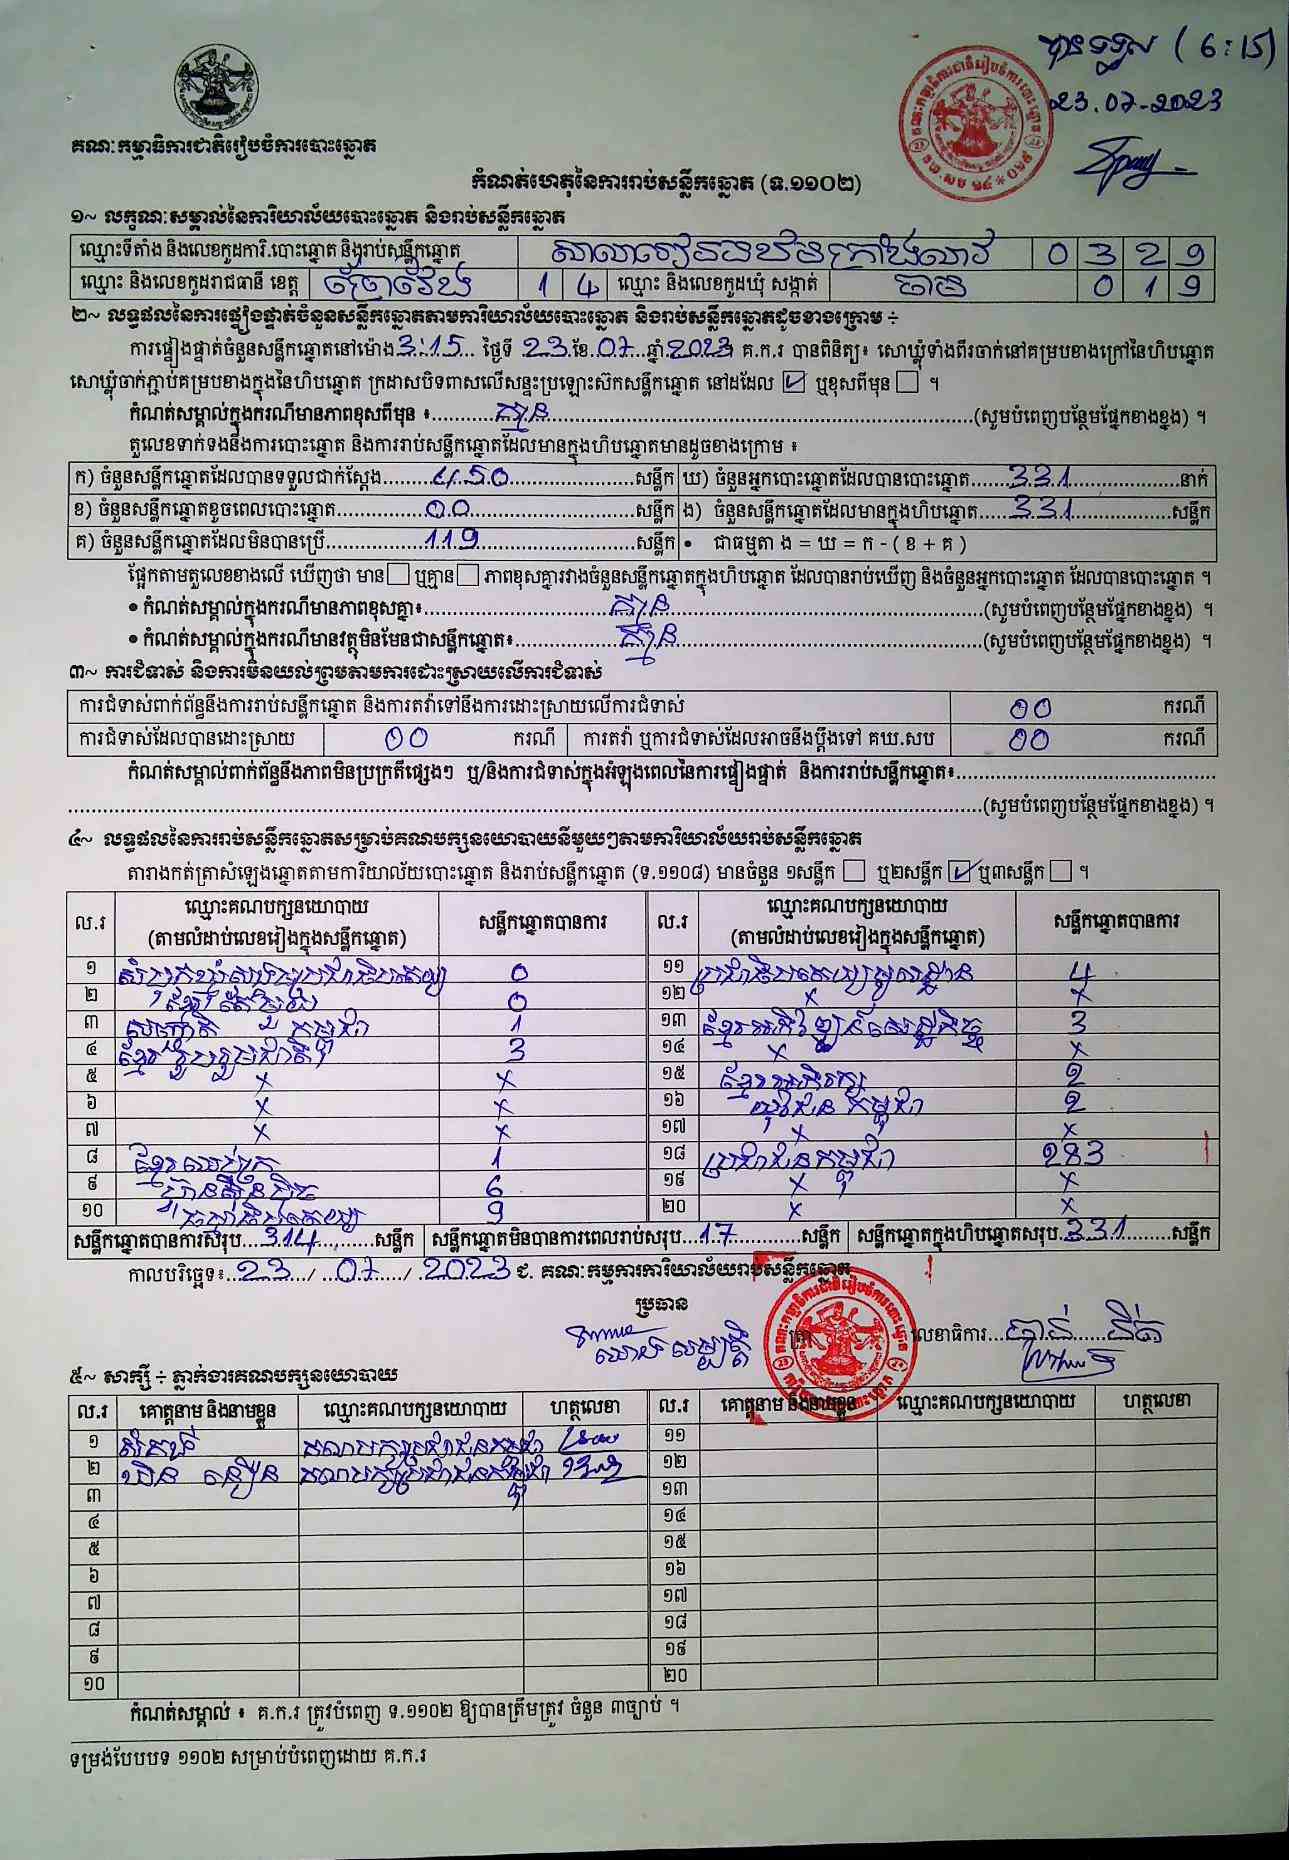 បានទទួល (6:15)
23.07-2023
គណៈកម្មាធិការជាតិរៀបចំការបោះឆ្នោត
កំណត់ហេតុនៃការរាប់សន្លឹកឆ្នោត (ទ.១១០២)
១~ លក្ខណៈសម្គាល់នៃការិយាល័យបោះឆ្នោត និងរាប់សន្លឹកឆ្នោត
ឈ្មោះទីតាំង និងលេខកូដការិ.បោះឆ្នោត និងរាប់សន្លឹកឆ្នោត សាលារៀនបឋម 0 3 2 9
ឈ្មោះ និងលេខកូដរាជធានី ខេត្ត ព្រៃវែង 1 4 ឈ្មោះ និងលេខកូដឃុំ សង្កាត់ 0 1 9
២~ លទ្ធផលនៃការផ្ទៀងផ្ទាត់ចំនួនសន្លឹកឆ្នោតតាមការិយាល័យបោះឆ្នោត និងរាប់សន្លឹកឆ្នោតដូចខាងក្រោម ÷
ការផ្ទៀងផ្ទាត់ចំនួនសន្លឹកឆ្នោតនៅម៉ោង 3:15 ថ្ងៃទី 23 ខែ 07 ឆ្នាំ 2023 គ.ក.រ បានពិនិត្យ៖ សោឃ្លុំទាំងពីរចាក់នៅគម្របខាងក្រៅនៃហិបឆ្នោត
សោឃ្លុំចាក់ភ្ជាប់គម្របខាងក្នុងនៃហិបឆ្នោត ក្រដាសបិទពាសលើសន្ទះប្រឡោះស៊កសន្លឹកឆ្នោត នៅដដែល ☑ ឬខុសពីមុន ☐ ។
កំណត់សម្គាល់ក្នុងករណីមានភាពខុសពីមុន ៖ គ្មាន (សូមបំពេញបន្ថែមផ្នែកខាងខ្នង) ។
តួលេខទាក់ទងនឹងការបោះឆ្នោត និងការរាប់សន្លឹកឆ្នោតដែលមានក្នុងហិបឆ្នោតមានដូចខាងក្រោម ៖
ក) ចំនួនសន្លឹកឆ្នោតដែលបានទទួលជាក់ស្តែង 450 សន្លឹក ឃ) ចំនួនអ្នកបោះឆ្នោតដែលបានបោះឆ្នោត 331 នាក់
ខ) ចំនួនសន្លឹកឆ្នោតខូចពេលបោះឆ្នោត 00 សន្លឹក ង) ចំនួនសន្លឹកឆ្នោតដែលមានក្នុងហិបឆ្នោត 331 សន្លឹក
គ) ចំនួនសន្លឹកឆ្នោតដែលមិនបានប្រើ 119 សន្លឹក • ជាធម្មតា ង = ឃ = ក - ( ខ + គ )
ផ្អែកតាមតួលេខខាងលើ ឃើញថា មាន ☐ ឬគ្មាន ☐ ភាពខុសគ្នារវាងចំនួនសន្លឹកឆ្នោតក្នុងហិបឆ្នោត ដែលបានរាប់ឃើញ និងចំនួនអ្នកបោះឆ្នោត ដែលបានបោះឆ្នោត ។
• កំណត់សម្គាល់ក្នុងករណីមានភាពខុសគ្នា៖ គ្មាន (សូមបំពេញបន្ថែមផ្នែកខាងខ្នង) ។
• កំណត់សម្គាល់ក្នុងករណីមានវត្ថុមិនមែនជាសន្លឹកឆ្នោត៖ គ្មាន (សូមបំពេញបន្ថែមផ្នែកខាងខ្នង) ។
៣~ ការជំទាស់ និងការមិនយល់ព្រមតាមការដោះស្រាយលើការជំទាស់
ការជំទាស់ពាក់ព័ន្ធនឹងការរាប់សន្លឹកឆ្នោត និងការតវ៉ាទៅនឹងការដោះស្រាយលើការជំទាស់ 00 ករណី
ការជំទាស់ដែលបានដោះស្រាយ 00 ករណី ការតវ៉ា ឬការជំទាស់ដែលអាចនឹងប្តឹងទៅ គឃ.សប 00 ករណី
កំណត់សម្គាល់ពាក់ព័ន្ធនឹងភាពមិនប្រក្រតីផ្សេងៗ ឬ/និងការជំទាស់ក្នុងអំឡុងពេលនៃការផ្ទៀងផ្ទាត់ និងការរាប់សន្លឹកឆ្នោត៖
(សូមបំពេញបន្ថែមផ្នែកខាងខ្នង) ។
៤~ លទ្ធផលនៃការរាប់សន្លឹកឆ្នោតសម្រាប់គណបក្សនយោបាយនីមួយៗតាមការិយាល័យរាប់សន្លឹកឆ្នោត
តារាងកត់ត្រាសំឡេងឆ្នោតតាមការិយាល័យបោះឆ្នោត និងរាប់សន្លឹកឆ្នោត (ទ.១១០៨) មានចំនួន ១សន្លឹក ☐ ឬ២សន្លឹក ☑ ឬ៣សន្លឹក ☐ ។
ល.រ ឈ្មោះគណបក្សនយោបាយ (តាមលំដាប់លេខរៀងក្នុងសន្លឹកឆ្នោត) សន្លឹកឆ្នោតបានការ ល.រ ឈ្មោះគណបក្សនយោបាយ (តាមលំដាប់លេខរៀងក្នុងសន្លឹកឆ្នោត) សន្លឹកឆ្នោតបានការ
១ សំបុកឃ្មុំសង្គមប្រជាធិបតេយ្យ 0 ១១ ប្រជាធិបតេយ្យមូលដ្ឋាន 4
២ ខ្មែរតែមួយ 0 ១២ x x
៣ សញ្ជាតិកម្ពុជា 1 ១៣ ខ្មែរអភិវឌ្ឍន៍សេដ្ឋកិច្ច 3
៤ ខ្មែររួបរួមជាតិ 3 ១៤ x x
៥ x x ១៥ ខ្មែរអភិរក្ស 2
៦ x x ១៦ យុវជនកម្ពុជា 2
៧ x x ១៧ x x
៨ ខ្មែរឈប់ក្រ 1 ១៨ ប្រជាជនកម្ពុជា 283
៩ ហ៊្វុនស៊ិនប៉ិច 6 ១៩ x x
១០ ធម្មាធិបតេយ្យ 9 ២០ x x
សន្លឹកឆ្នោតបានការសរុប 314 សន្លឹក សន្លឹកឆ្នោតមិនបានការពេលរាប់សរុប 17 សន្លឹក សន្លឹកឆ្នោតក្នុងហិបឆ្នោតសរុប 331 សន្លឹក
កាលបរិច្ឆេទ៖ 23 / 07 / 2023 ជ. គណៈកម្មការការិយាល័យរាប់សន្លឹកឆ្នោត
ប្រធាន
លេខាធិការ
៥~ សាក្សី ÷ ភ្នាក់ងារគណបក្សនយោបាយ
ល.រ គោត្តនាម និងនាមខ្លួន ឈ្មោះគណបក្សនយោបាយ ហត្ថលេខា ល.រ គោត្តនាម និងនាមខ្លួន ឈ្មោះគណបក្សនយោបាយ ហត្ថលេខា
១ គណបក្សប្រជាជនកម្ពុជា ១១
២ គណបក្សប្រជាជនកម្ពុជា ១២
៣ ១៣
៤ ១៤
៥ ១៥
៦ ១៦
៧ ១៧
៨ ១៨
៩ ១៩
១០ ២០
កំណត់សម្គាល់ ៖ គ.ក.រ ត្រូវបំពេញ ទ.១១០២ ឱ្យបានត្រឹមត្រូវ ចំនួន ៣ច្បាប់ ។
ទម្រង់បែបបទ ១១០២ សម្រាប់បំពេញដោយ គ.ក.រ